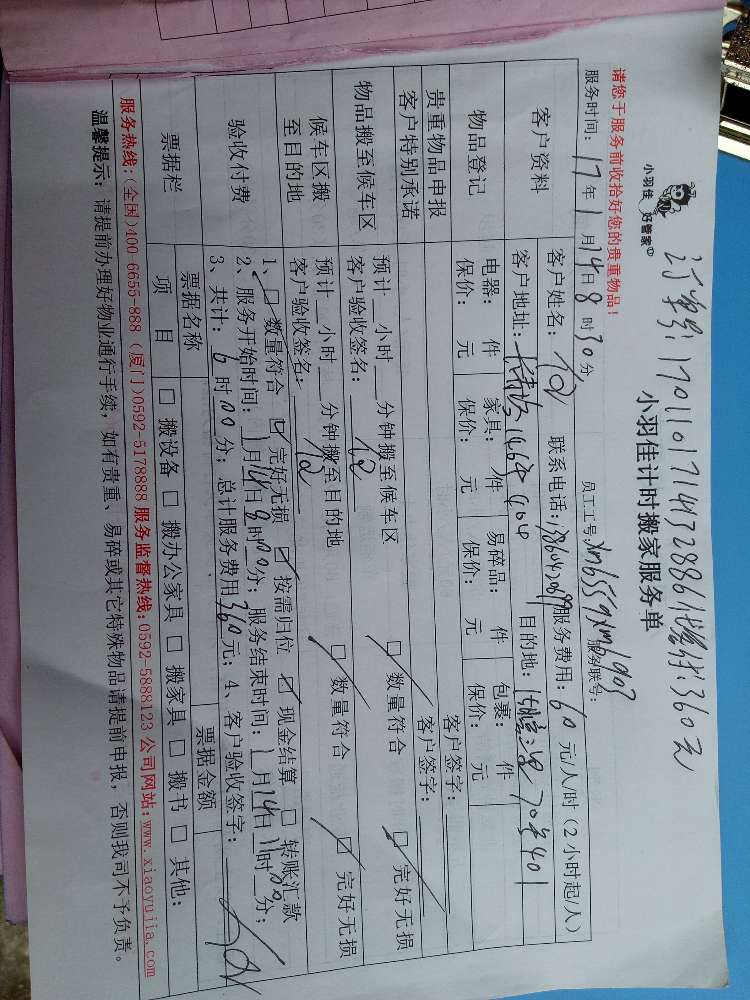 订单号:
360元
小羽佳 好管家
小羽佳计时搬家服务单
请您于服务前收拾好您的贵重物品!
服务时间: 17年1月14日8时30分 员工工号: 服务联号:
客户资料 客户姓名: 联系电话: 服务费用: 60元/人/时(2小时起/人)
客户地址: 目的地: 70号401
物品登记 电器: 件 家具: 件 易碎品: 件 包裹: 件
保价: 元 保价: 元 保价: 元 保价: 元
贵重物品申报 客户签字:
客户特别承诺 客户签字:
物品搬至候车区 预计__小时__分钟搬至候车区 □ 数量符合 □ 完好无损
客户验收签名:
候车区搬至目的地 预计__小时__分钟搬至目的地 □ 数量符合 □ 完好无损
客户验收签名:
验收付费 1、□ 数量符合 □ 完好无损 □ 按需归位 □ 现金结算 □ 转账汇款
2、服务开始时间: 1月14日8时00分; 服务结束时间: 1月14日11时00分;
3、共计: 6时00分; 总计服务费用360元; 4、客户验收签字:
票据栏 票据名称 票据金额
项 目 □ 搬设备 □ 搬办公家具 □ 搬家具 □ 搬书 □ 其他:
服务热线:(全国)400-6655-888 (厦门)0592-5178888 服务监督热线:0592-5888123 公司网站:www.xiaoyujia.com
温馨提示: 请提前办理好物业通行手续, 如有贵重、易碎或其它特殊物品请提前申报, 否则我司不予负责。